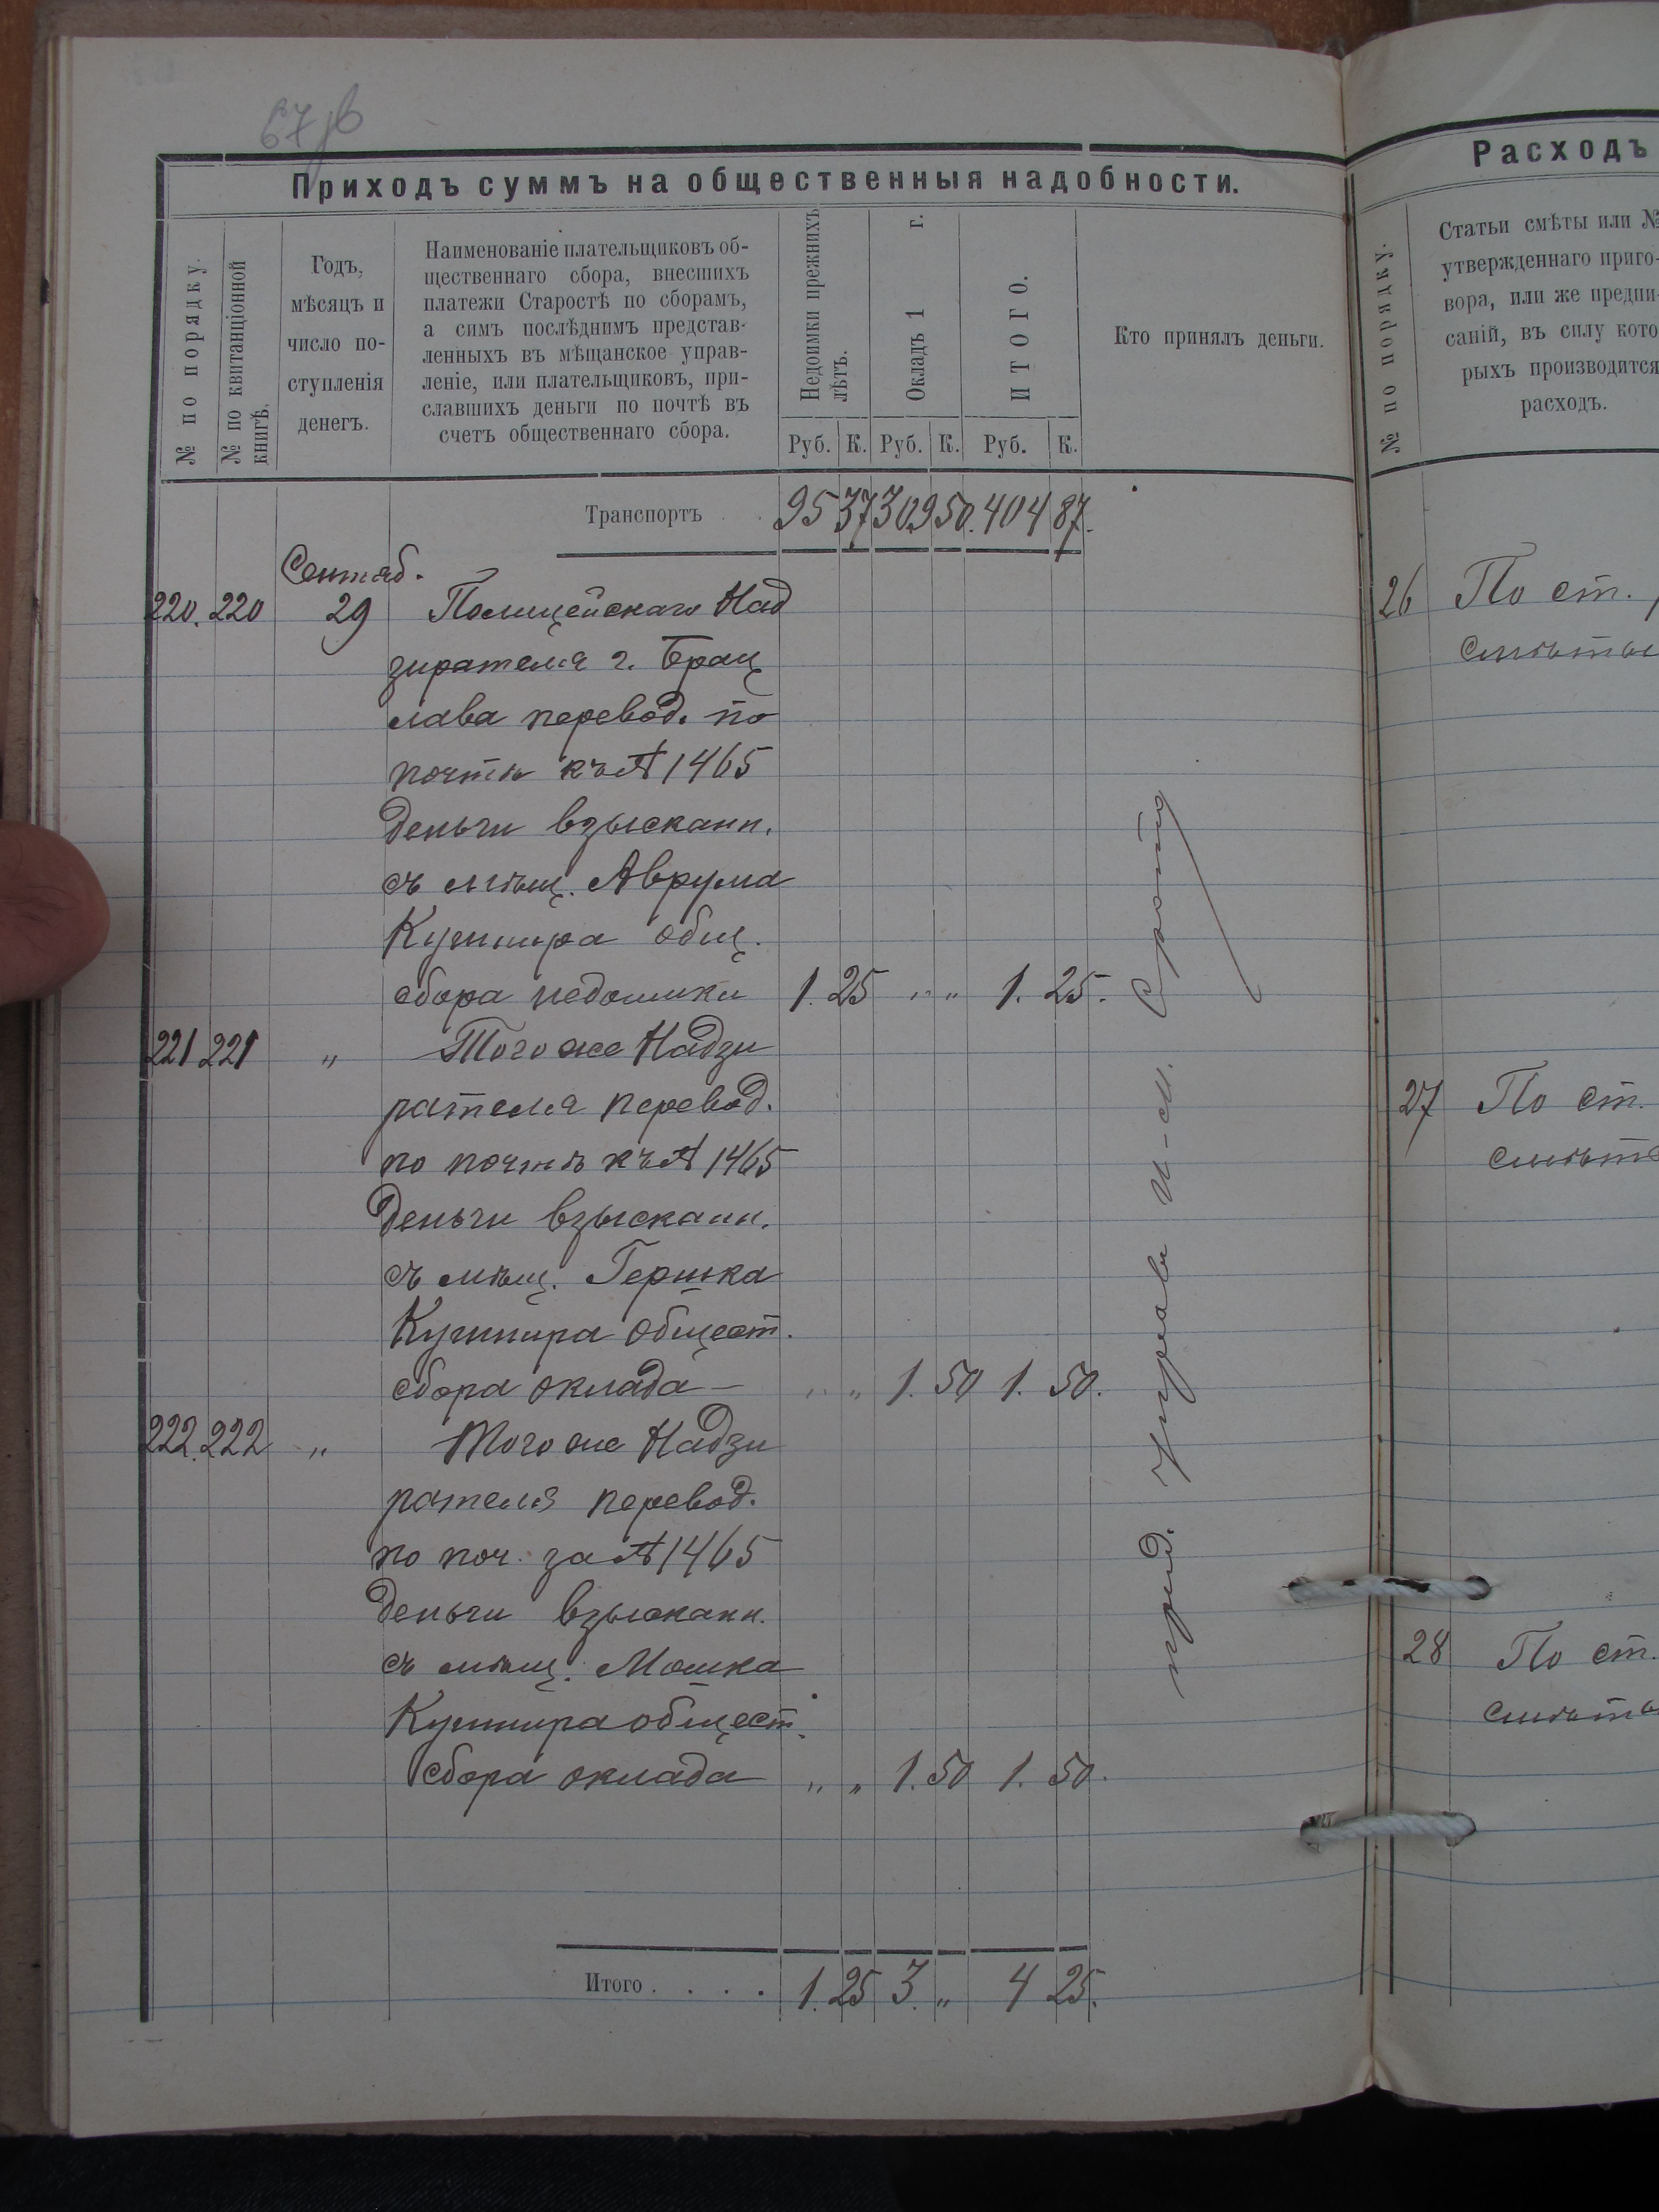 67 об
Приходъ суммъ на общественныя надобности.
№ по порядку.
№ по квитанціонной книгѣ.
Годъ,
мѣсяцъ и
число по-
ступленія
денегъ.
Наименованіе плательщиковъ об-
щественнаго сбора, внесшихъ
платежи Старостѣ по сборамъ,
а симъ послѣднимъ представ-
ленныхъ въ мѣщанское управ-
леніе, или плательщиковъ, при-
славшихъ деньги по почтѣ въ
счетъ общественнаго сбора.
Недоимки прежнихъ
лѣтъ.
Окладъ 1 г.
ИТОГО.
Руб. К. Руб. К. Руб. К.
Кто принялъ деньги.
Транспортъ . . 95 37 309 50. 404 87.
Сентяб.
220. 220 29 Полицейскаго Над
зирателя г. Брац
лава перевод. по
почтѣ къ № 1465
деньги взысканн.
съ мѣщ. Аврума
Кушнира общ.
сбора недоимки 1. 25 „ „ 1. 25.
221 221 „ Того же Надзи
рателя перевод.
по почтѣ къ № 1465
деньги взысканн.
съ мѣщ. Гершка
Кушнира общест.
сбора оклада — „ „ 1. 50 1. 50.
222. 222 „ Того же Надзи
рателя перевод.
по поч. за № 1465
деньги взысканн.
съ мѣщ. Мошка
Кушнира общест.
сбора оклада „ „ 1. 50 1. 50.
Итого . . . . 1. 25 3. „ 4 25.
Расходъ
№ по порядку.
Статьи смѣты или №
утвержденнаго приго-
вора, или же предпи-
саній, въ силу кото
рыхъ производится
расходъ.
26 По ст.
смѣты
27 По ст.
28 По ст.
смѣты